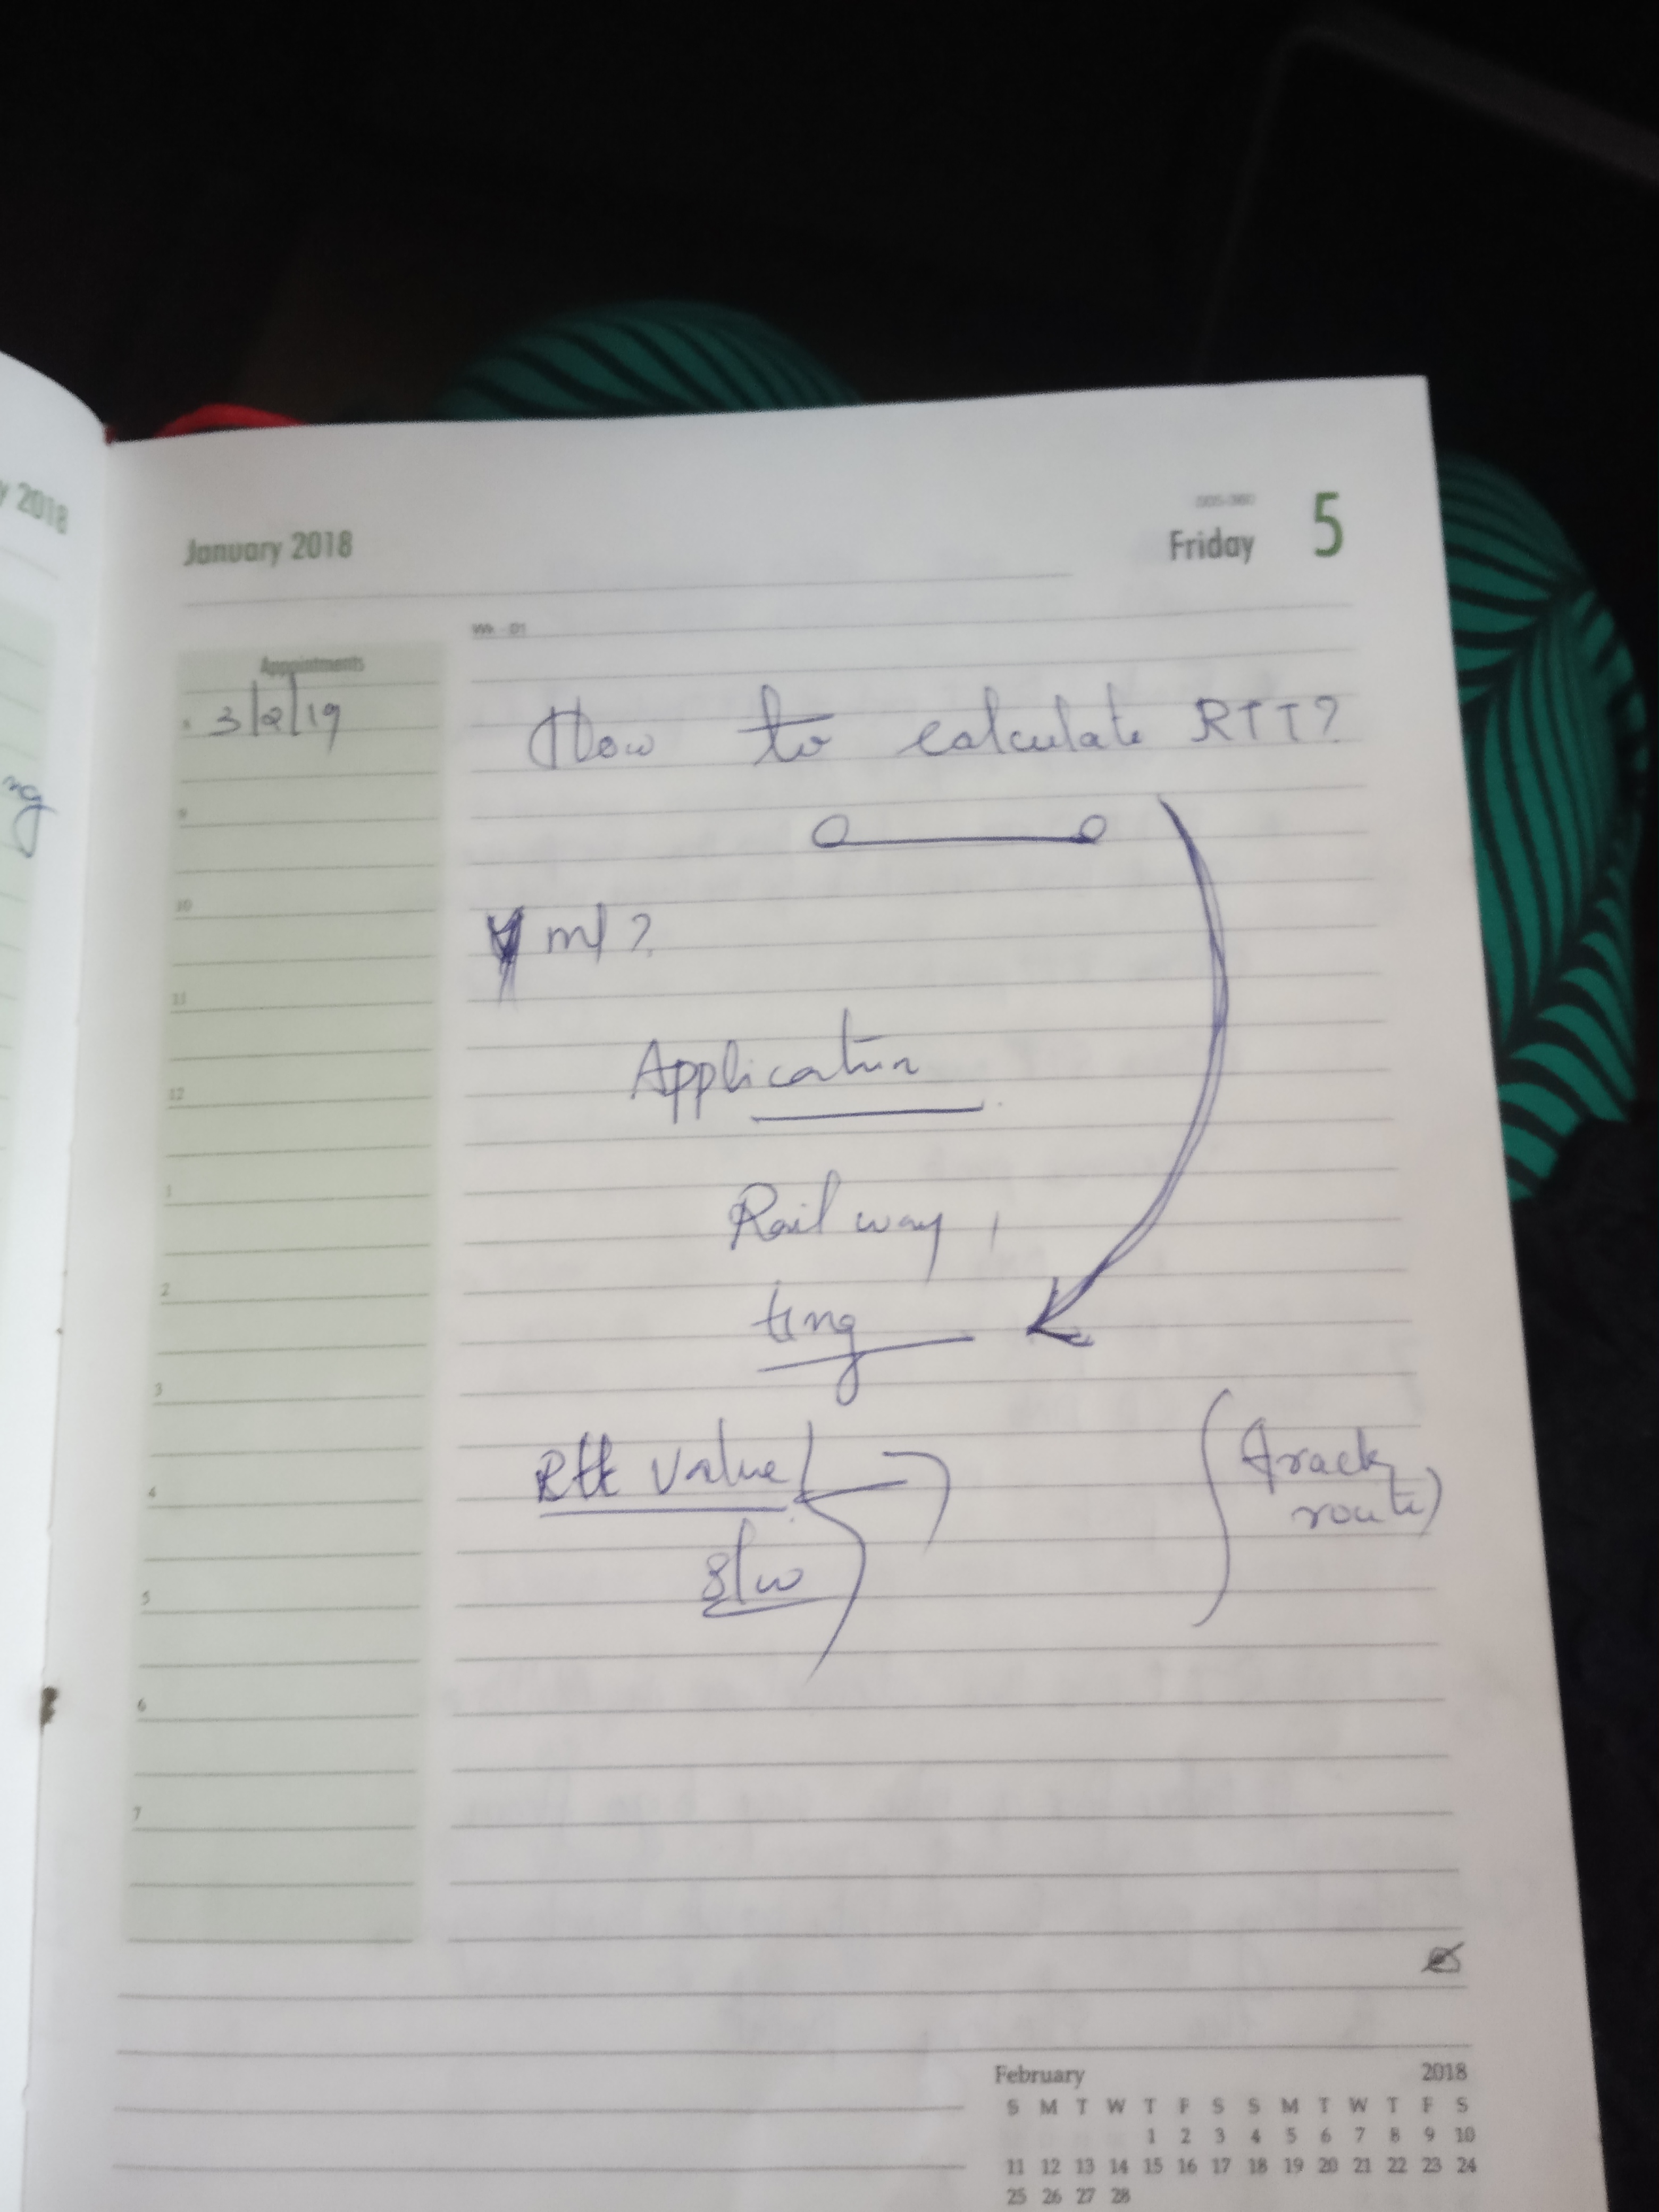 y 2018
ng
January 2018
Friday 5
Wk - 01
Appointments
3/2/19
How to calculate RTT?
9
10
m/?
11
Application
12
Railway,
1
2
ting
3
Rtt value
(track
route)
4
s/w
5
6
7
February 2018
S M T W T F S S M T W T F S
1 2 3 4 5 6 7 8 9 10
11 12 13 14 15 16 17 18 19 20 21 22 23 24
25 26 27 28